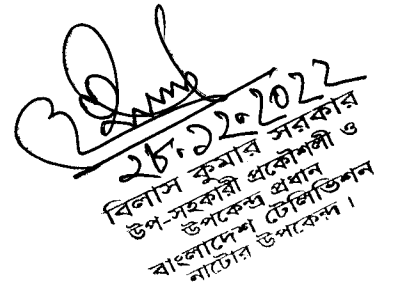 ২৮.১২.২০২২
বিলাস কুমার সরকার
উপ-সহকারী প্রকৌশলী ও
উপকেন্দ্র প্রধান
বাংলাদেশ টেলিভিশন
নাটোর উপকেন্দ্র।